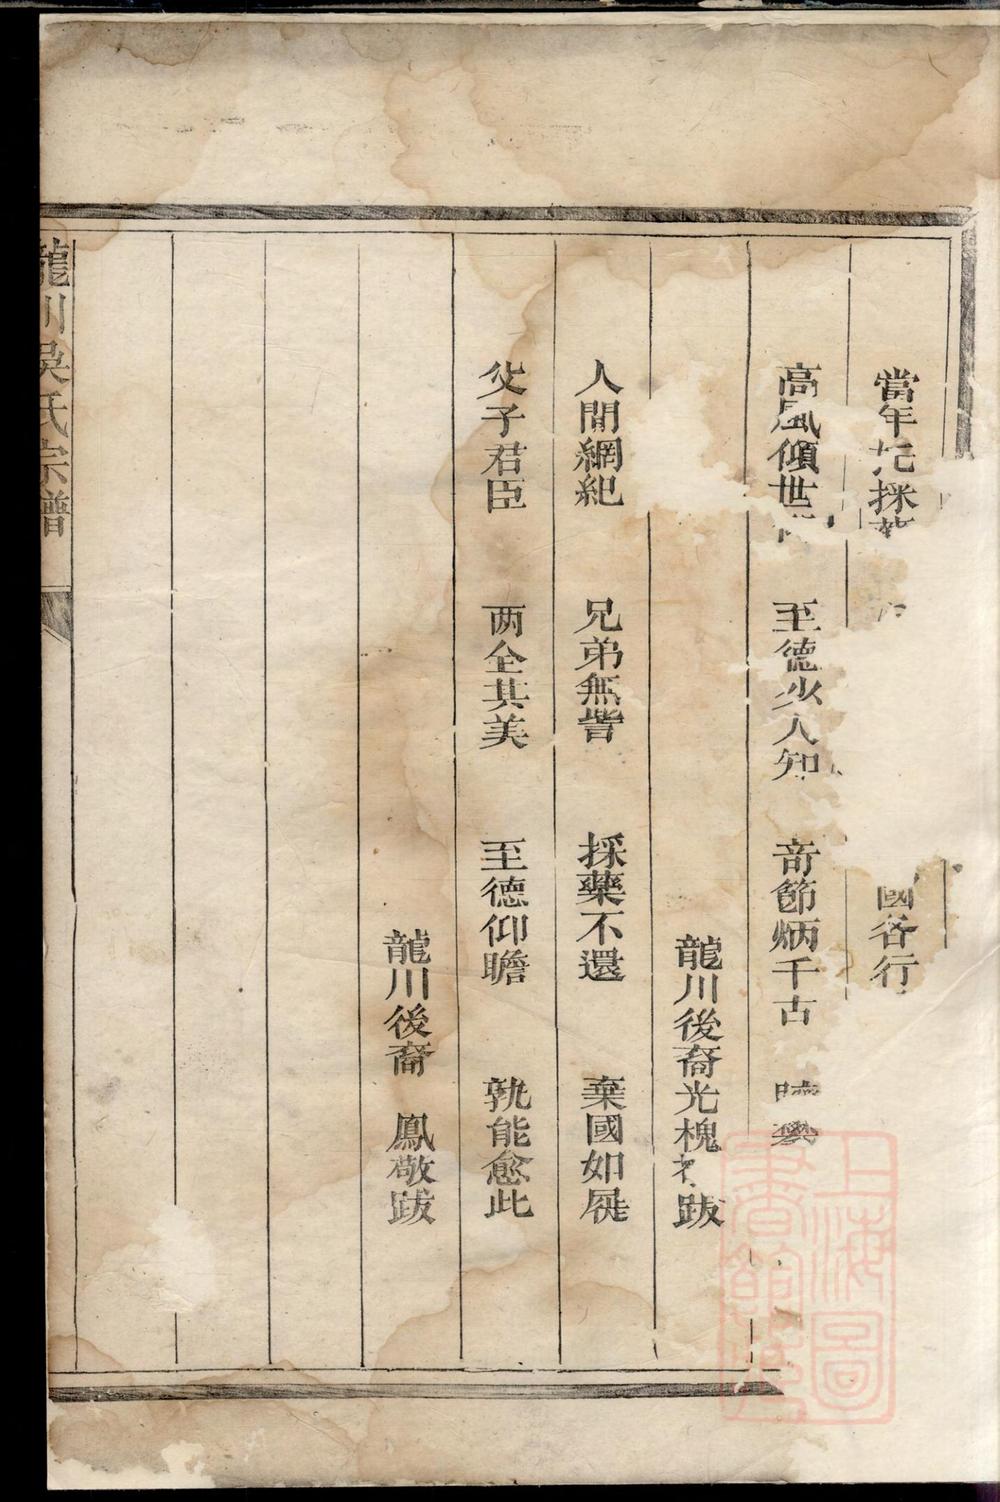 當年 採 國各行
高風傾世 至德少人知 奇節炳千古
龍川後裔光槐 跋
人間網紀 兄弟無訾 採藥不還 棄國如屣
父子君臣 两全其美 至德仰瞻 孰能愈此
龍川後裔 鳳敬跋
龍川吳氏宗譜
上海圖書館藏